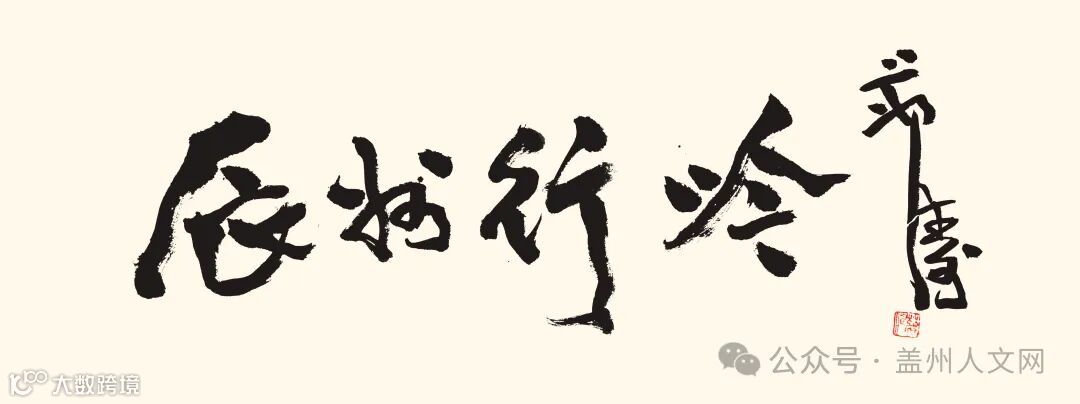 辰州行吟
公众号·盖州人文网
大数跨境